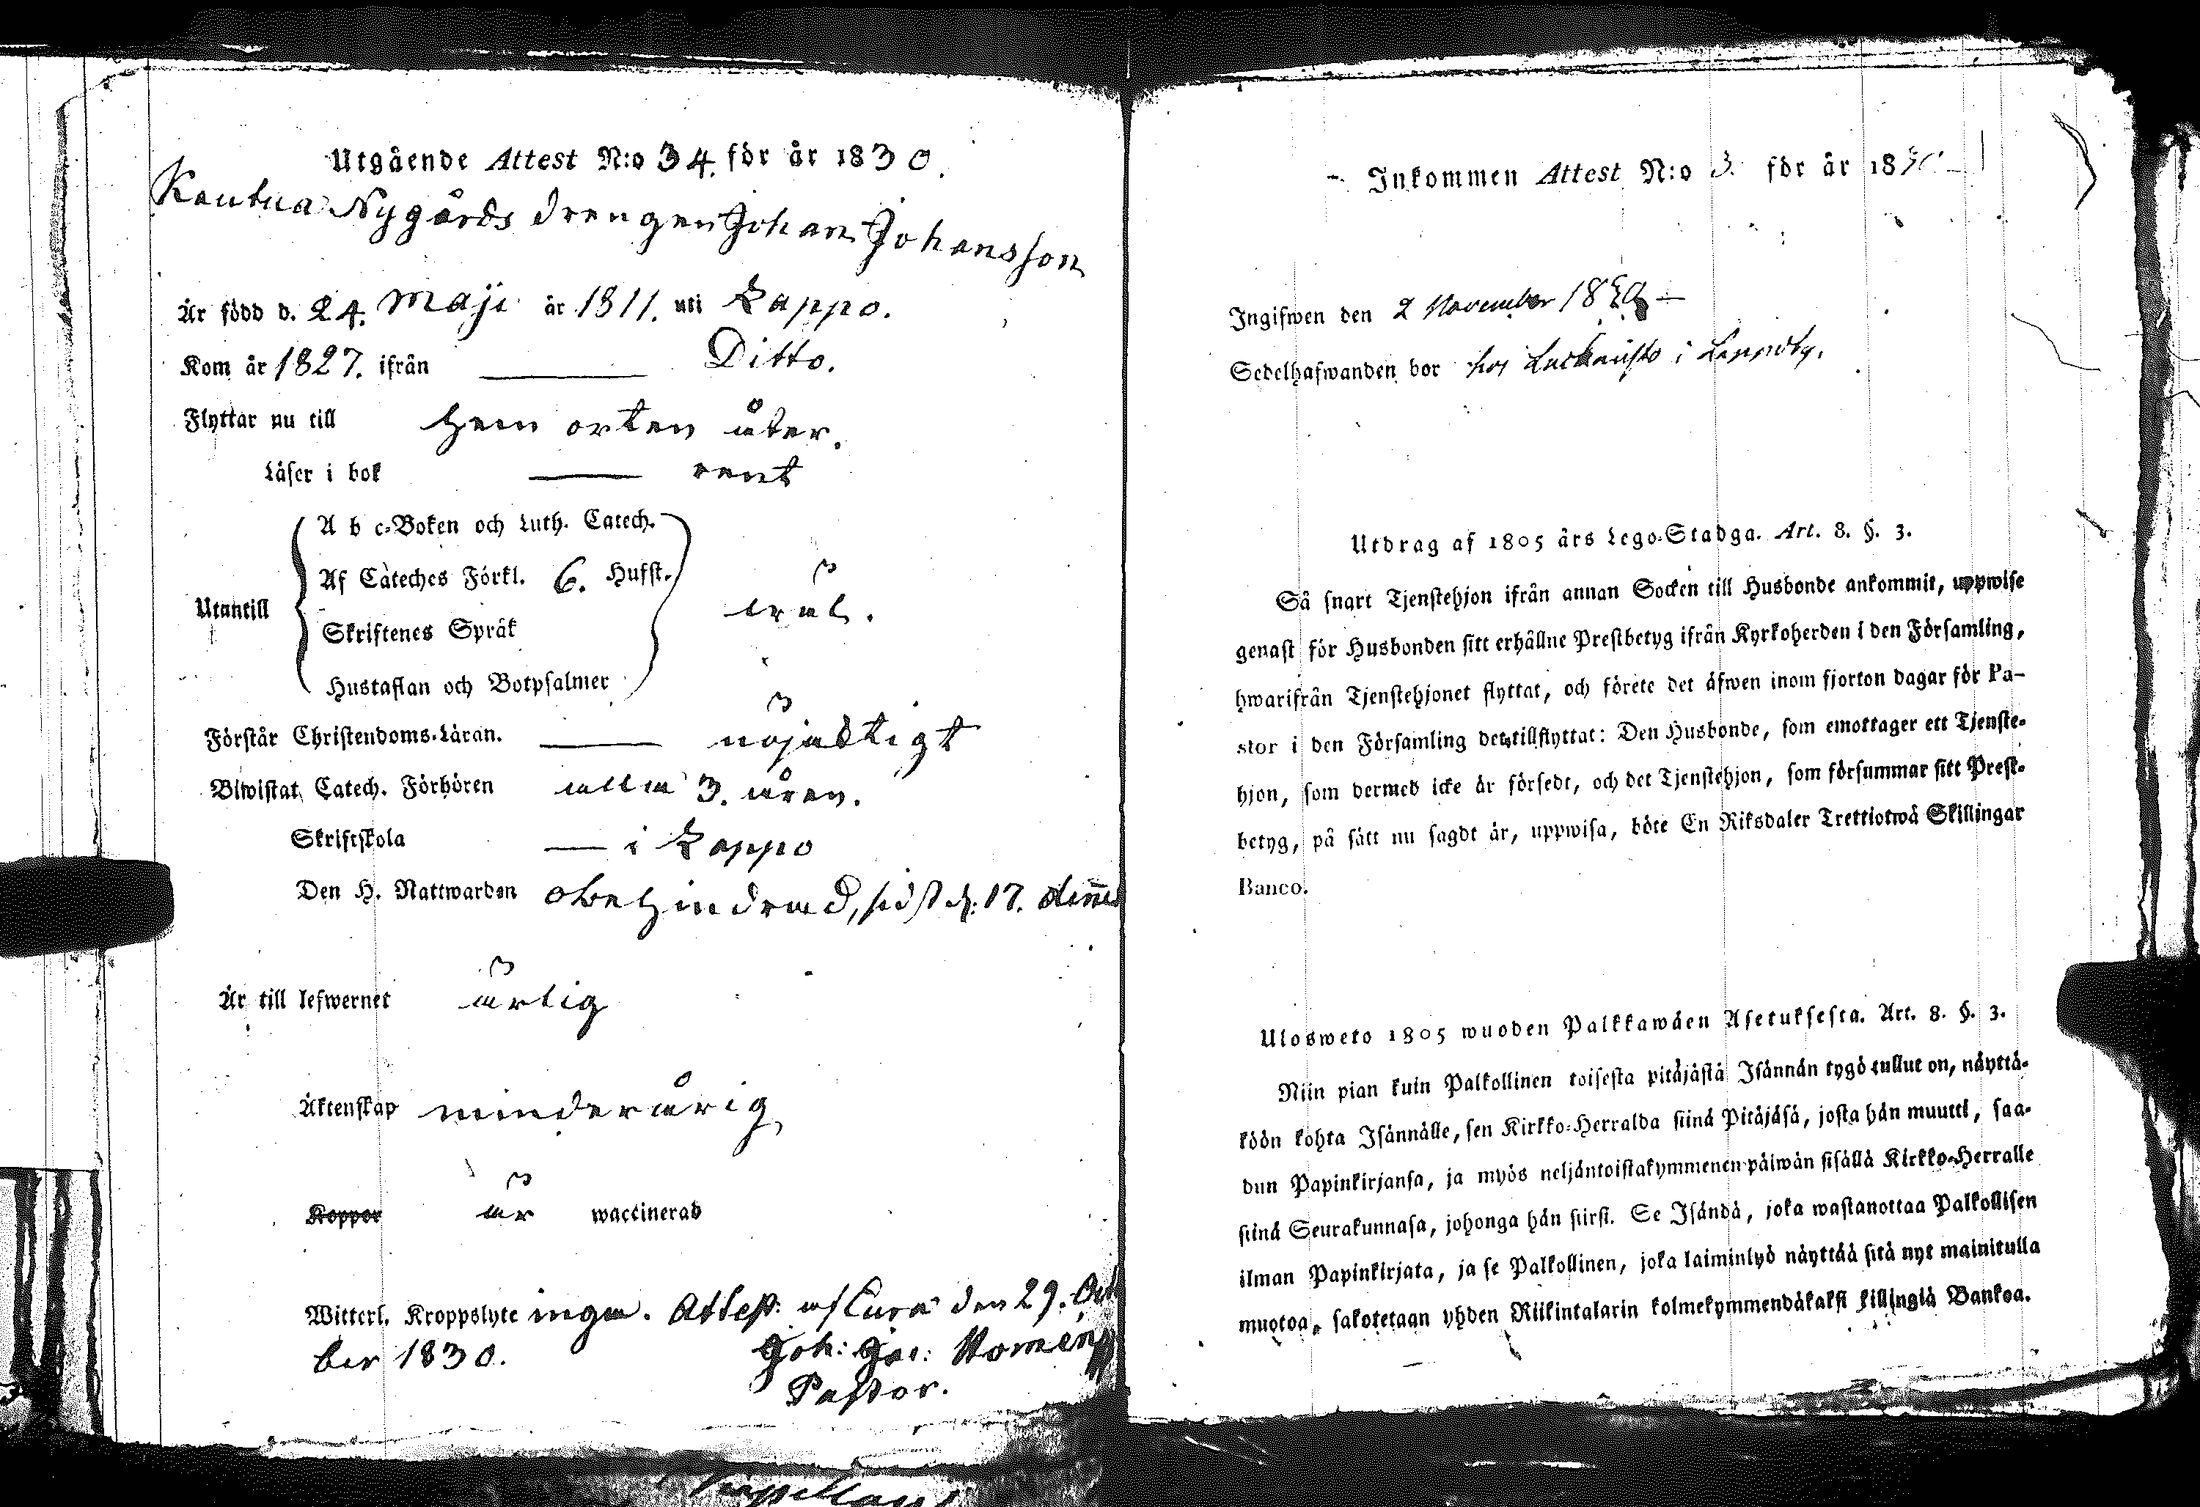 Utgående Attest N:o 34. för år 1830.
Kautua Nygårds drengen Johan Johansson
Är född d. 24. Maji år 1811. uti Lappo.
Kom år 1827. ifrån — Ditto.
Flyttar nu till hem orten åter.
Läser i bok — rent
A b c-Boken och Luth. Catech.
Af Cateches Förkl. 6. Hufst.
Utantill
Skriftenes Språk
Hustaflan och Botpsalmer
Förstår Christendoms-Läran. — nöjaktigt
Biwistat Catech. Förhören alla 3. åren.
Skriftskola — i Lappo
Den H. Nattwarden obehindrad, sidst d. 17. dennes
Är till lefwernet ärlig
Äktenskap minderårig
Koppor är waccinerad
Witterl. Kroppslyte inga. Attest: af Eura den 29. Octo
ber 1830. Joh: Jac:
Pastor.
Inkommen Attest N:o 3. för år 1830
Ingifwen den 2 November 1830 —
Sedelhafwanden bor hos i Lappoby.
Utdrag af 1805 års Lego-Stadga. Art. 8. §. 3.
Så snart Tjenstehjon ifrån annan Socken till Husbonde ankommit, uppwise
genast för Husbonden sitt erhållne Prestbetyg ifrån Kyrkoherden i den Församling,
hwarifrån Tjenstehjonet flyttat, och förete det äfwen inom fjorton dagar för Pa-
stor i den Församling det tillflyttat: Den Husbonde, som emottager ett Tjenste-
hjon, som dermed icke är försedt, och det Tjenstehjon, som försummar sitt Prest-
betyg, på sätt nu sagdt är, uppwisa, böte En Riksdaler Trettiotwå Skillingar
Banco.
Ulosweto 1805 wuoden Palkkawäen Asetuksesta. Art. 8. §. 3.
Niin pian kuin Palkollinen toisesta pitäjästä Isännän tygö tullut on, näyttä-
köön kohta Isännälle, sen Kirkko-Herralda siinä Pitäjäsä, josta hän muutti, saa-
dun Papinkirjansa, ja myös neljäntoistakymmenen päiwän sisällä Kirkko-Herralle
siinä Seurakunnasa, johonga hän siirsi. Se Isändä, joka wastanottaa Palkollisen
ilman Papinkirjata, ja se Palkollinen, joka laiminlyö näyttää sitä nyt mainitulla
muotoa, sakotetaan yhden Riikintalarin kolmekymmendäkaksi killingiä Bankoa.